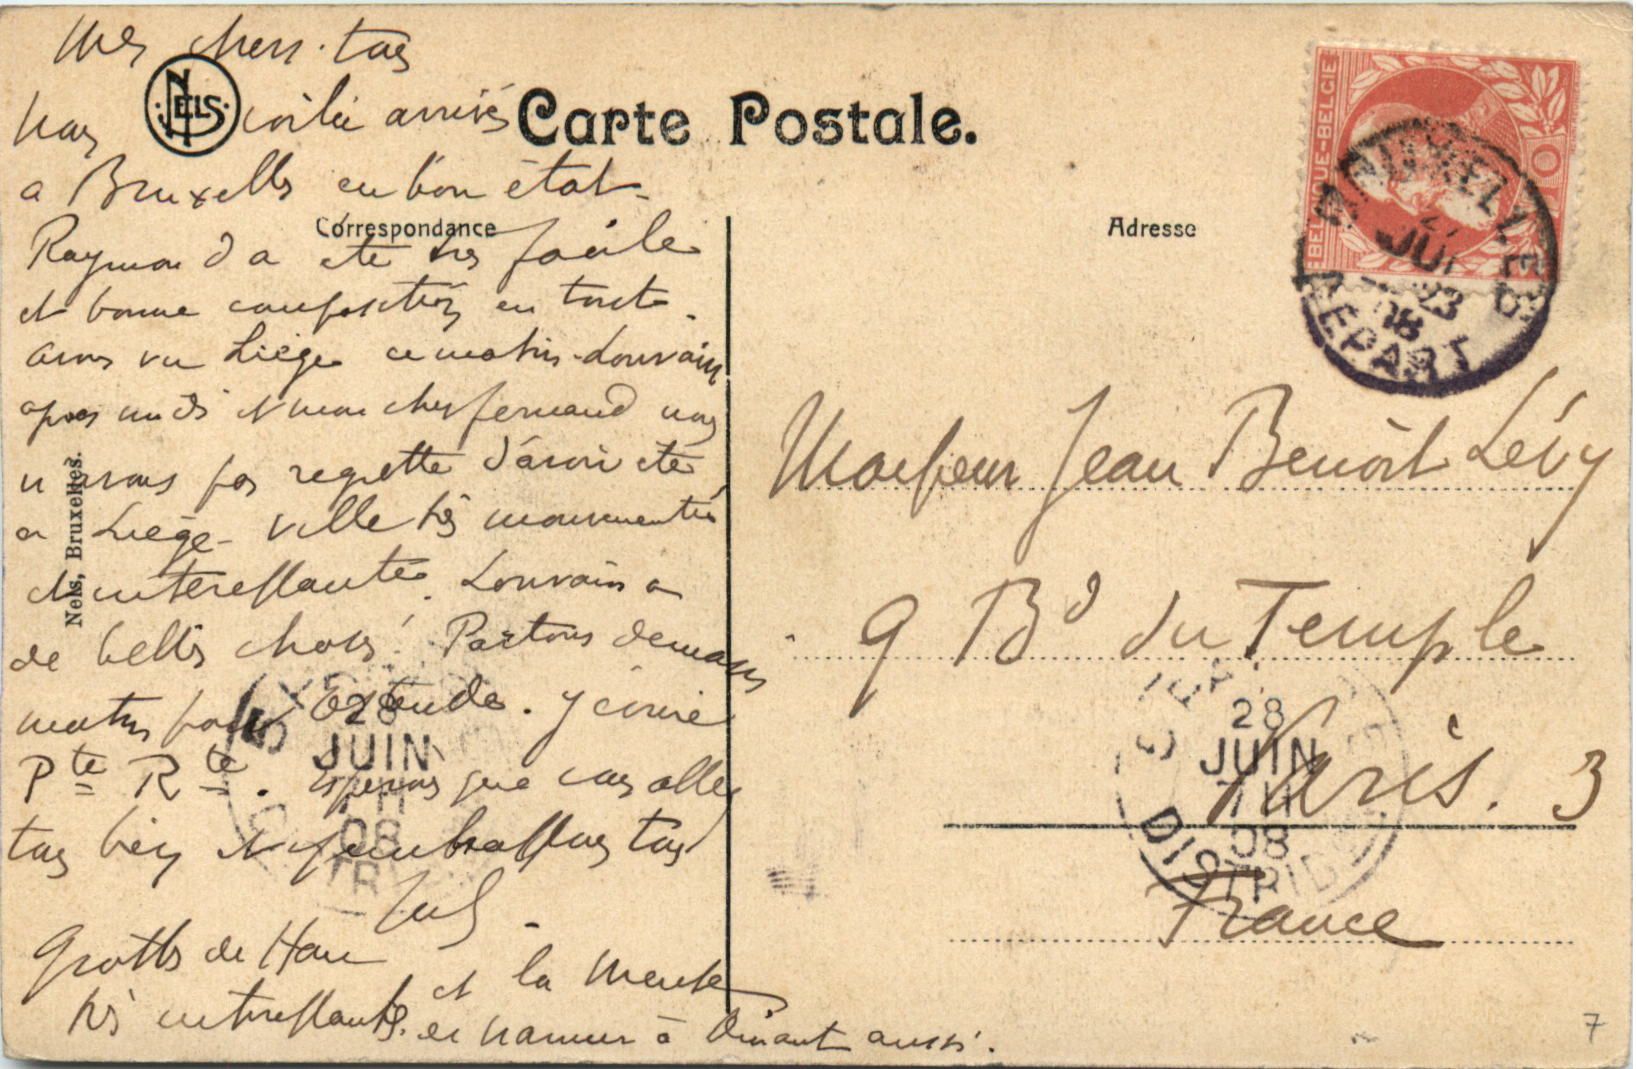 Mes chers tous
NELS
Nous voilà arrivés
Carte Postale.
a Bruxelles en bon état.
Correspondance
Raymond a été très facile
et bonne composition en tout.
avons vu Liège ce matin. Louvain
après midi et mon cher fernand nous
n avons pas regretté d'avoir été
a Liège - ville très mouvementée
et intéressante. Louvain a
de belles choses! Partons demain
matin pour Ostende. y écrire
Pte Rte. Espérons que vous allez
tous bien et embrassons tous
Grottes de Han
et la Meuse
très intéressantes. de Namur à Dinant aussi.
Nels, Bruxelles.
Adresse
BELGIQUE-BELGIE
10
BRUXELLES
JUI
23
08
DEPART
Monsieur Jean Benoit Lévy
9 Bd du Temple
Paris. 3
France
28
JUIN
08
DISTRIB
28
JUIN
08
TR
7